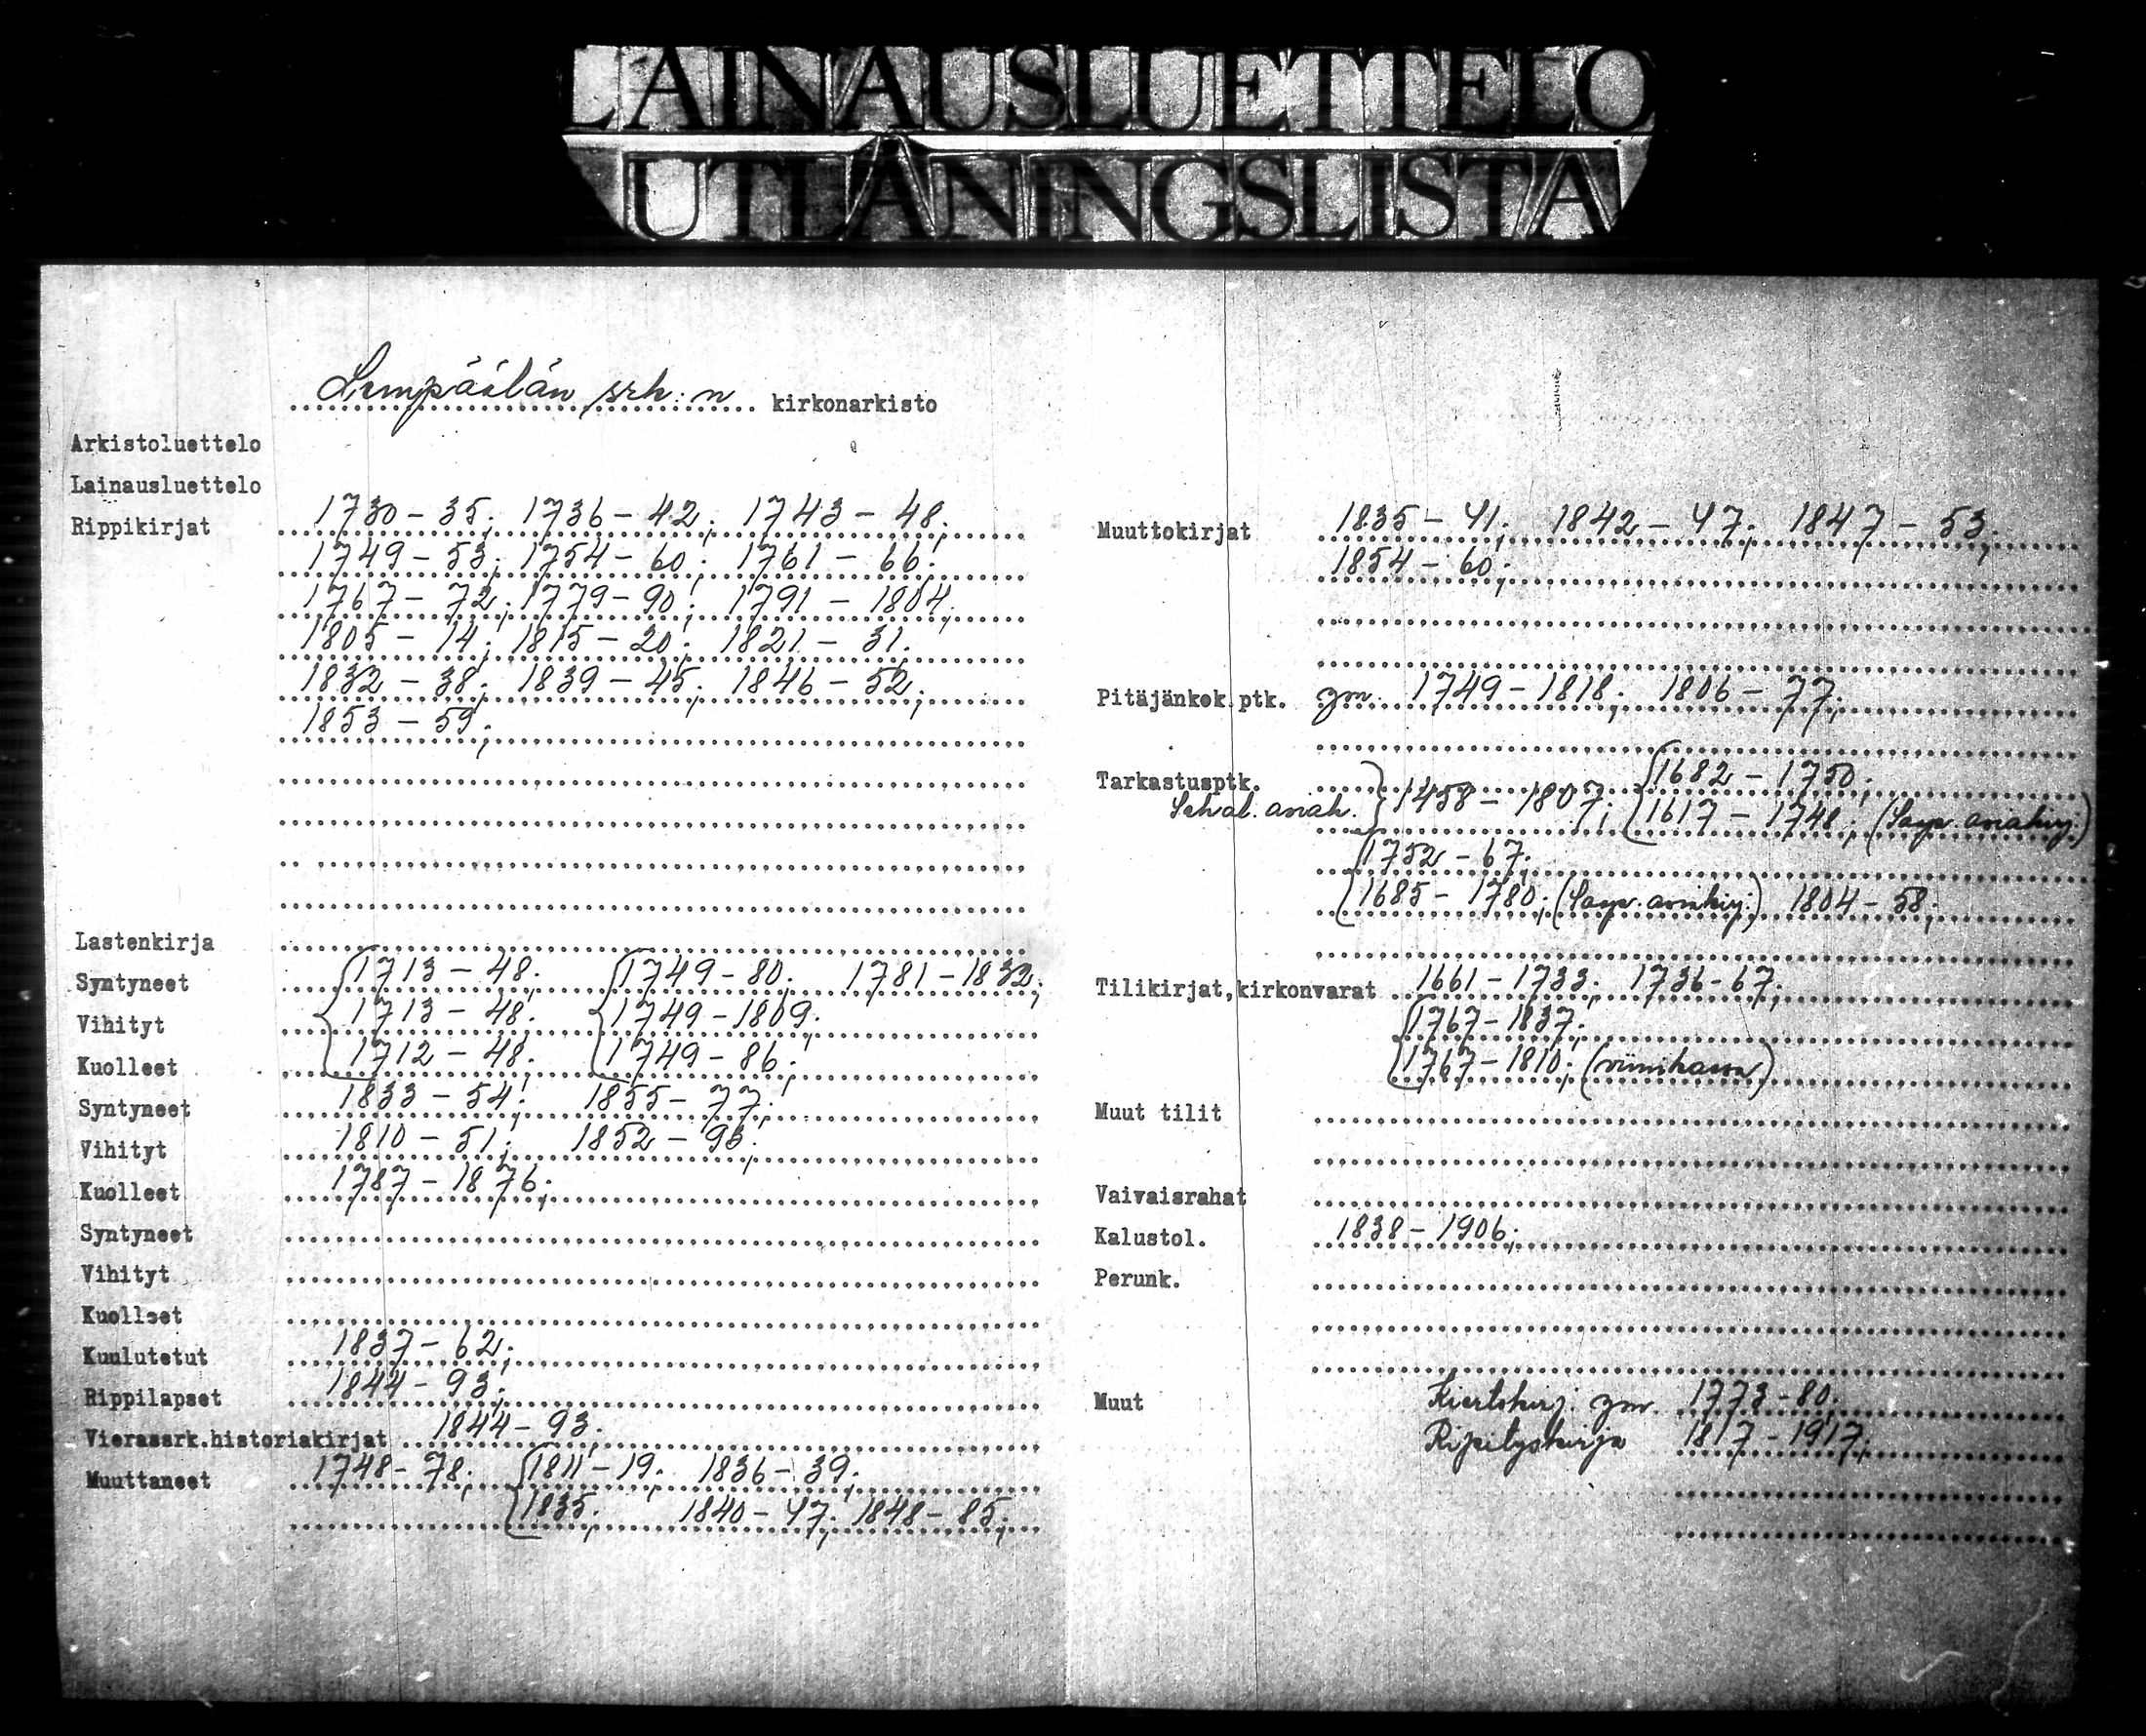 LAINAUSLUETTELO
UTLÅNINGSLISTA
Lempäälän srk:n kirkonarkisto
Arkistoluettelo
Lainausluettelo
Rippikirjat 1730-35; 1736-42; 1743-48;
1749-53; 1754-60; 1761-66;
1767-72; 1779-90; 1791-1804;
1805-14; 1815-20; 1821-31;
1832-38; 1839-45; 1846-52;
1853-59;
Lastenkirja
Syntyneet 1713-48; 1749-80; 1781-1832;
Vihityt 1713-48; 1749-1809;
Kuolleet 1712-48; 1749-86;
Syntyneet 1833-54; 1855-77;
Vihityt 1810-51; 1852-93;
Kuolleet 1787-1876;
Syntyneet
Vihityt
Kuolleet
Kuulutetut 1837-62;
Rippilapset 1844-93;
Vierassrk.historiakirjat 1844-93;
Muuttaneet 1748-78; 1811-19; 1836-39;
1835; 1840-47; 1848-85;
Muuttokirjat 1835-41; 1842-47; 1847-53;
1854-60;
Pitäjänkok.ptk. ym. 1749-1818; 1806-77;
Tarkastusptk. 1682-1750;
Sekal. asiak. 1458-1807; 1617-1748; (Sekal. asiakirj.)
1752-67;
1685-1780; 1804-58;
Tilikirjat,kirkonvarat 1661-1733; 1736-67;
1767-1837;
1767-1810; (viinikassa)
Muut tilit
Vaivaisrahat
Kalustol. 1838-1906;
Perunk.
Muut Kiertokirj. ym. 1773-80;
Ripityskirja 1817-1917;